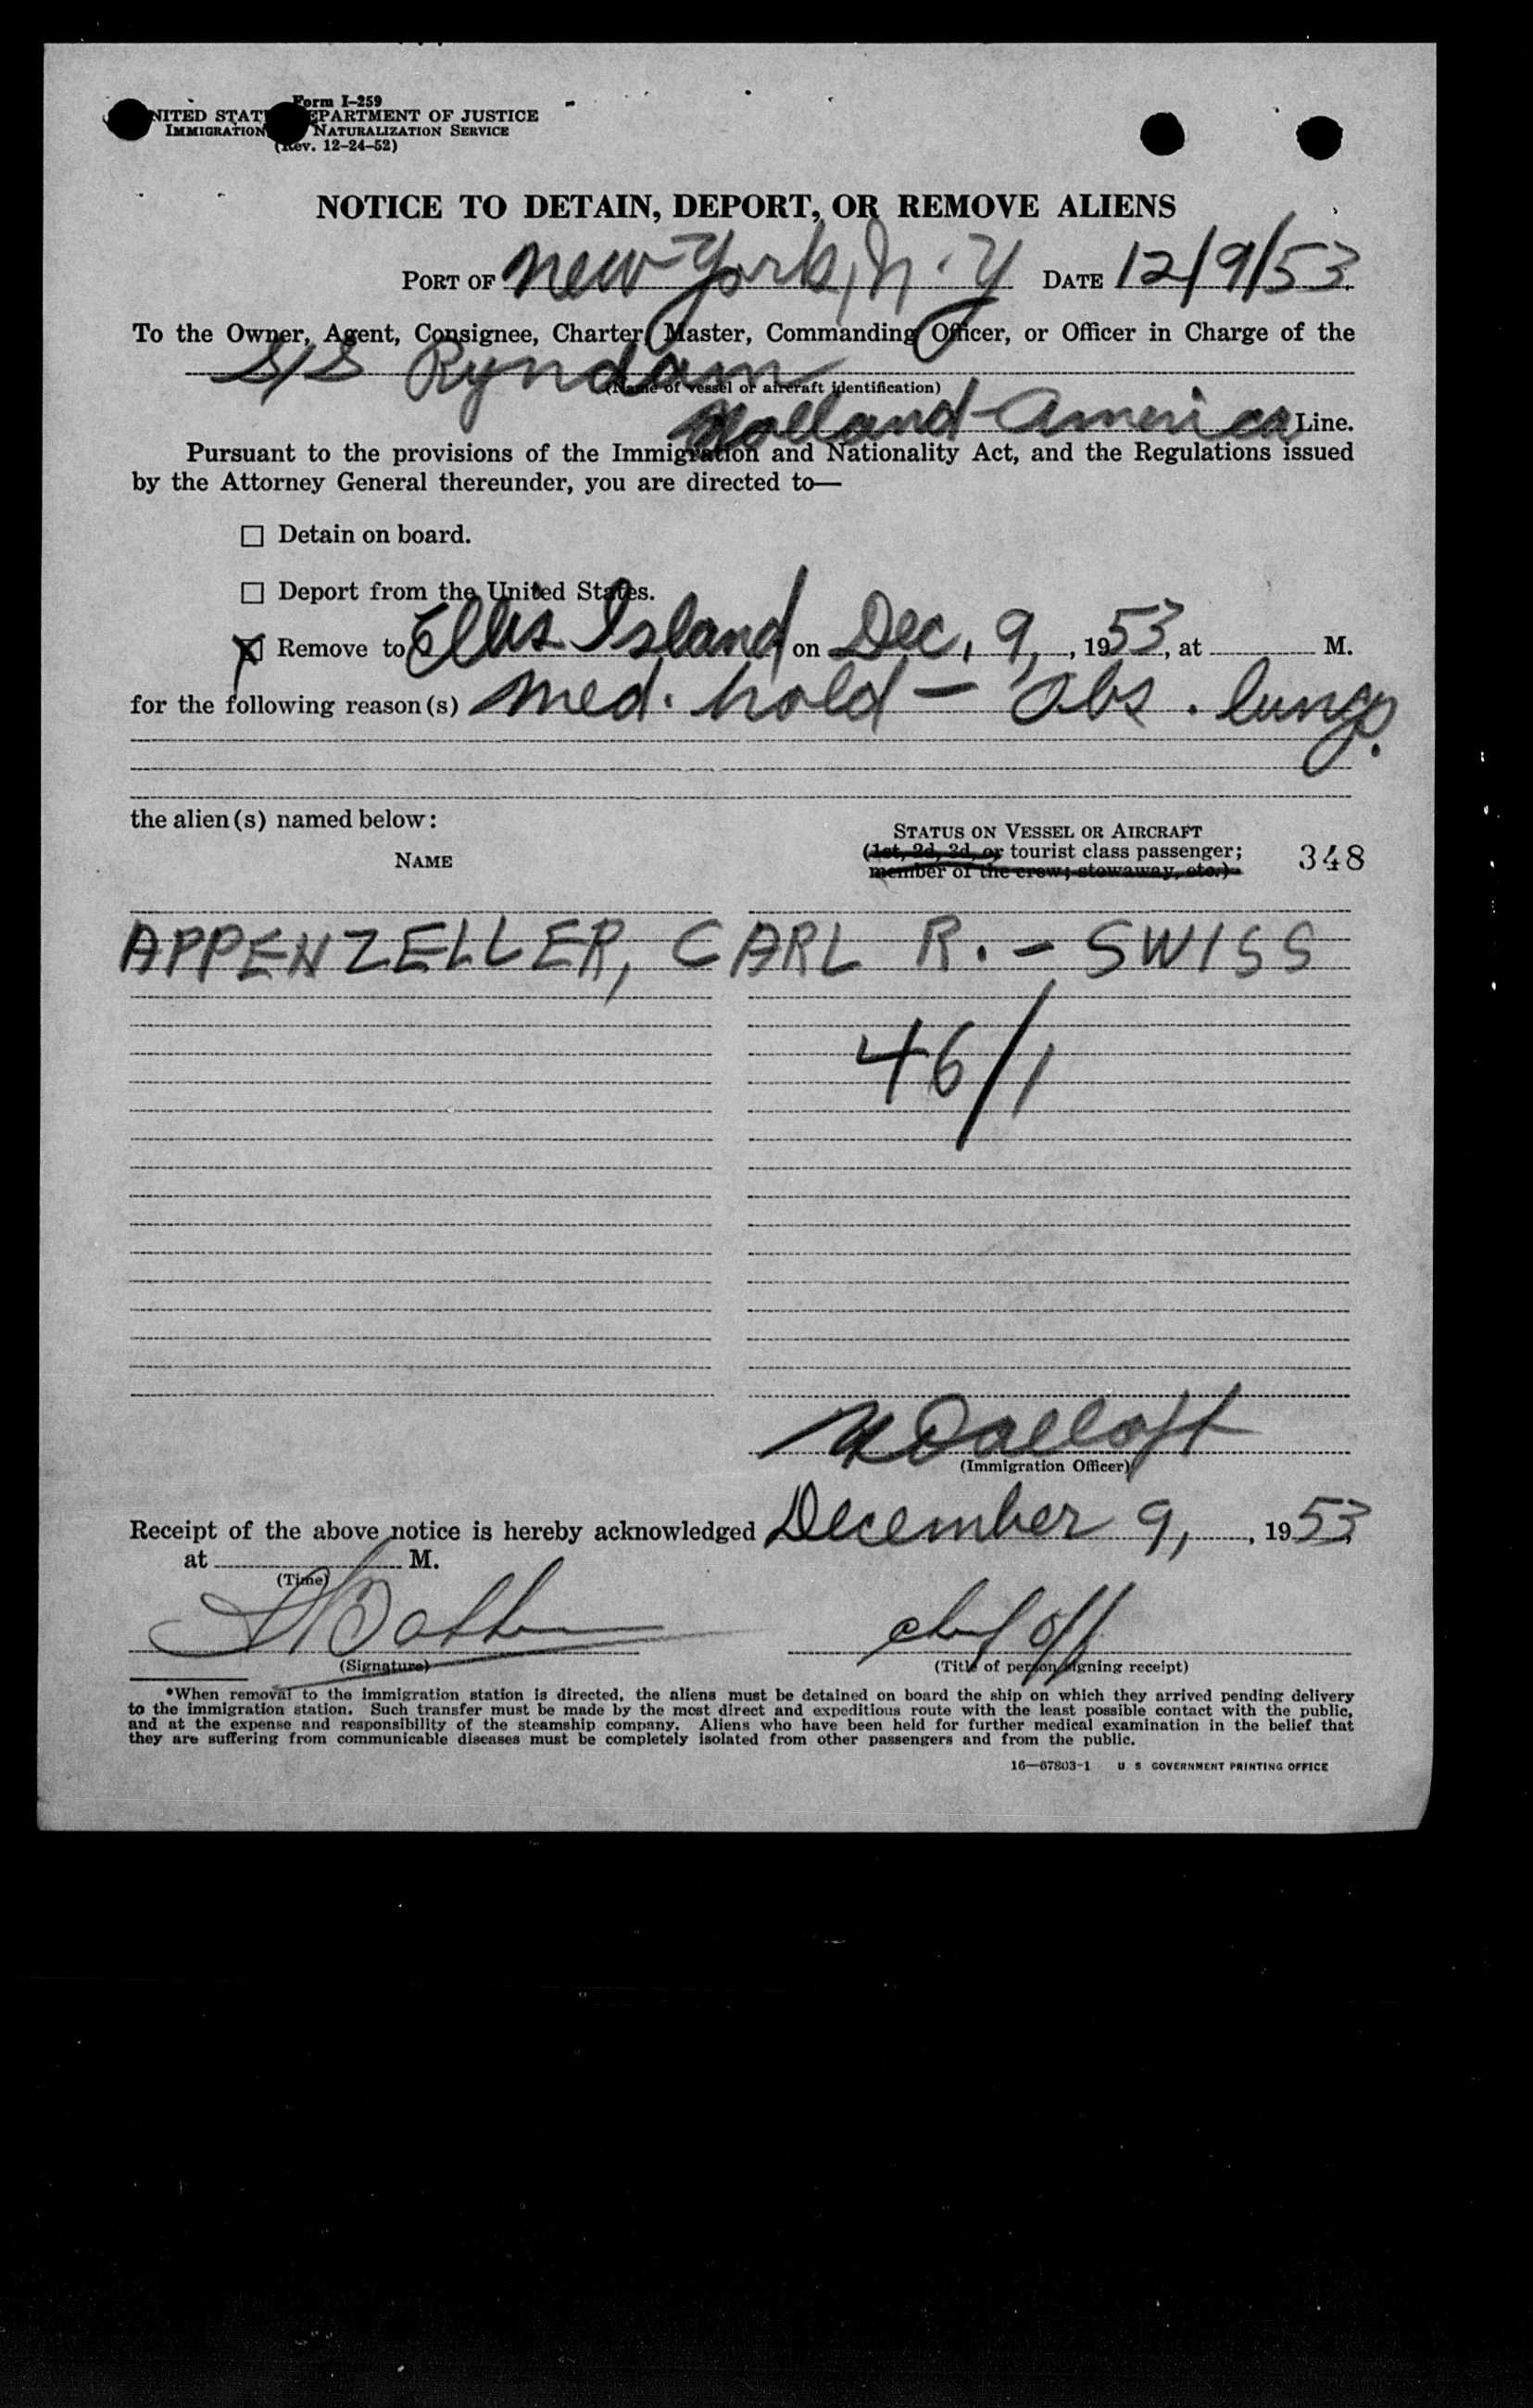 Form I-259
NITED STAT EPARTMENT OF JUSTICE
IMMIGRATION NATURALIZATION SERVICE
(Rev. 12-24-52)
NOTICE TO DETAIN, DEPORT, OR REMOVE ALIENS
PORT OF New York, N.Y DATE 12/9/53
To the Owner, Agent, Consignee, Charter, Master, Commanding Officer, or Officer in Charge of the
S/S Ryndam
(Name of vessel or aircraft identification)
Holland-America Line.
Pursuant to the provisions of the Immigration and Nationality Act, and the Regulations issued
by the Attorney General thereunder, you are directed to—
☐ Detain on board.
☐ Deport from the United States.
☒ Remove to Ellis Island on Dec. 9, , 1953, at M.
for the following reason(s) Med. hold - Obs. lungs.
the alien(s) named below:
NAME
STATUS ON VESSEL OR AIRCRAFT
(1st, 2d, 3d, or tourist class passenger; 348
member of the crew; stowaway, etc.)
APPENZELLER, CARL R. - SWISS
46/1
(Immigration Officer)
Receipt of the above notice is hereby acknowledged December 9, , 1953
at M.
(Time)
chief off
(Signature) (Title of person signing receipt)
*When removal to the immigration station is directed, the aliens must be detained on board the ship on which they arrived pending delivery
to the immigration station. Such transfer must be made by the most direct and expeditious route with the least possible contact with the public,
and at the expense and responsibility of the steamship company. Aliens who have been held for further medical examination in the belief that
they are suffering from communicable diseases must be completely isolated from other passengers and from the public.
16—67803-1 U S GOVERNMENT PRINTING OFFICE